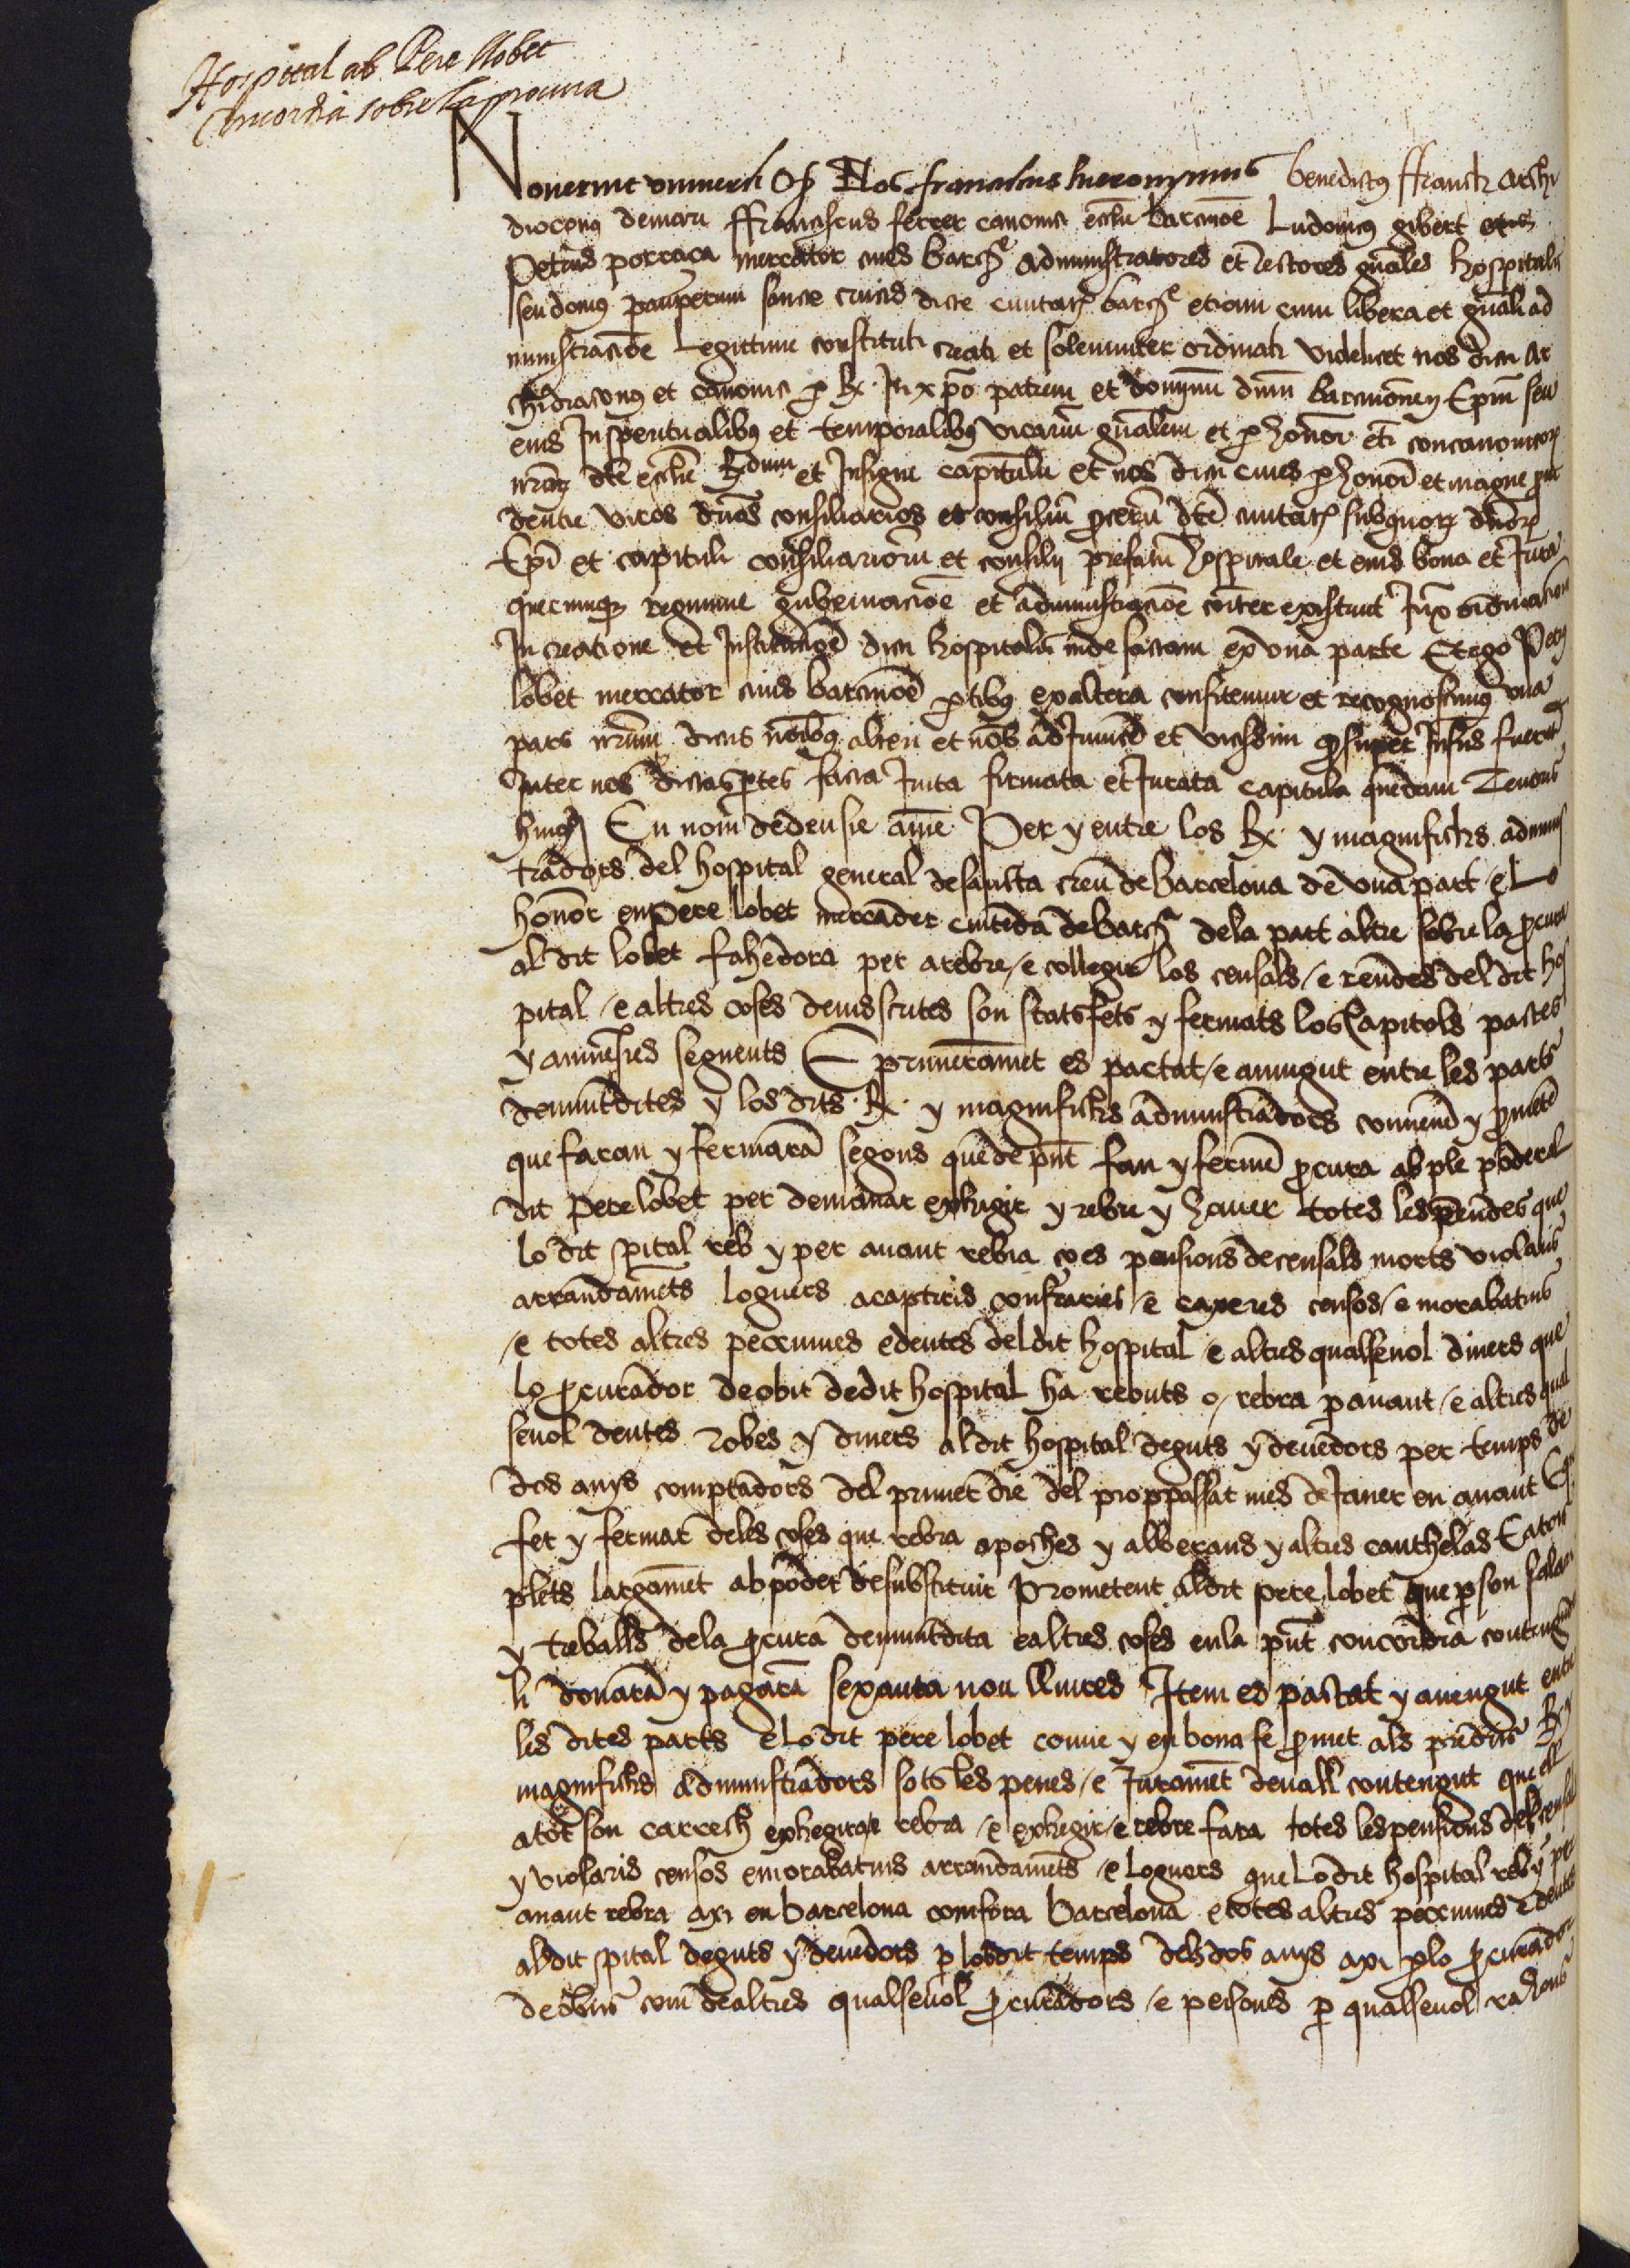 Hospital ab Pere llobet
Concordia sobre la procura
Noverint universi q Nos franciscus hieronymus benedictus ffranch archi
diaconus de mari ffranciscus ferrer canonici ecclie barcinoñ Ludovicus gibert
Petrus porraça mercator cives barchñ administratores et rectores gñales hospitalis
seu domus pauperum sancte crucis dicte civitatis barchñ etiam cum libera et gñali ad
ministracione Legittime constituti creati et solemniter ordinati videlicet nos dicti ar
chidiaconus et canonici p Rx. In xpo patrem et dominum dñm barcinoneñ Epm seu
eius In spiritualibus et temporalibus vicariũ gñalem et p honor. concanonicorum
nrorum dce ecclie Rdum et Insigne capitulum et nos dicti cives p honor. et magne pru
dentie viros dños consiliarios et consiliũ procerũ dce civitatis sub quorum dñorum
Epi et capituli consiliariorũ et consilii prefatũ hospitale et eius bona et Jura
quecumque regimine gubernacione et administracione existunt Juxta ordinationem
In creatione et Institucione dicti hospitalis inde factam ex una parte Et ego Petrus
lobet mercator civis barcinoñ ptibus ex altera confitemur et recognoscimus una
pars nrum dictis nõibus alteri et nos ad Invicem et vicissim q super Infris fuerũt
Inter nos dictas ptes facta Inita firmata et Jurata capitula quedam Tenoris
huiusmodi En nom de deu sie amẽ Per y entre los Rx. y magnifichs adminis
tradors del hospital general de sancta creu de barcelona de una part e Lo
honor. en pere lobet mercader ciutedã de barchñ dela part altre sobre la procura
al dit lobet fahedora per arebre / e collegir los censals / e rendes del dit hos
pital / e altres coses devis scrites son stats fets y fermats los Capitols pactes
y avinẽses seguents E primeramẽt es pactat / e avingut entre les parts
demuntdites y los dits .Rx. y magnifichs administradors convenẽ y prometẽ
que faran y fermarã segons que de pñt fan y fermẽ procura ab ple poder al
dit Pere lobet per demanar exhigir y rebre y haver totes les rendes que
lo dit spital reb y per avant rebra ço es pensions de censals morts violaris
arrendamẽts loguers acaptiris confraries / e caxeres censos / e morabatins
/ e totes altres peccunies e deutes del dit hospital / e altres qualsevol diners que
lo procurador de obit de dit hospital ha rebuts o / rebra p avant / e altres qual
sevol deutes Robes y diners al dit hospital deguts y devedors per temps de
dos anys comptadors del primer die del proppassat mes de Janer en avant
fer y fermar deles coses que rebra apoches y alberans y altres cautheles E aton
plets largamẽt ab poder de substituir Prometent al dit pere lobet que p son salari
y treballs dela procura demuntdita e altres coses en la pñt concordia contengudes
li donarã y pagarã sexanta nou lliures Item es pactat y avengut entre
les dites parts e Lo dit pere lobet conve y en bona fe promet als predits Rx
magnifichs administradors sots les penes / e Juramẽt devall contengut que ell
a tot son carrech exhegira e rebra / e exhegir / e rebre fara totes les pensions dels censals
y violaris censos e morabatins arrendamẽts / e loguers que Lo dit hospital reb y per
avant rebra axi en barcelona com fora barcelona e totes altres peccunies e deutes
al dit spital deguts y devedors p lo dit temps dels dos anys axi p lo procurador
de obits com de altres qualsevol procuradors / e persones p qualsevol rahons